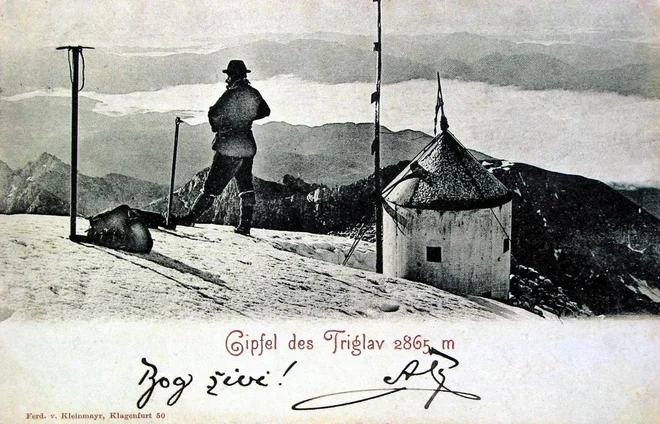 Gipfel des Triglav 2865 m
Bog živi!
Ferd. v. Kleinmayr, Klagenfurt 50